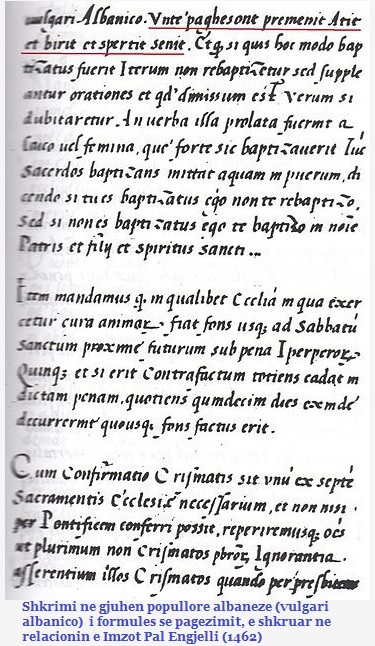 vulgari Albanico. Vnte paghesont premenit Atit
et birit et spertit senit. Etq, si quis hoc modo bap
tizatus fuerit Iterum non rebaptizetur sed supple
antur orationes et qd' dimissum est. Verum si
dubitaretur. An verba illa prolata fuerint a
laico vel femina, que' forte sic baptizaverit Tuc
Sacerdos baptizans mittat aquam in puerum, di
cendo si tu es baptizatus ego non te rebaptizo,
Sed si non es baptizatus ego te baptizo in noie
Patris et filij et spiritus sancti ...
Item mandamus q. in qualibet Ecclia in qua exer
cetur cura animar fiat fons usq; ad Sabbatu
Sanctum proxime futurum sub pena Iperperor
Quinq; et si erit Contrafactum totiens cadat in
dictam penam, quotiens quindecim dies exinde
decurrerint quousq; fons factus erit.
Cum Confirmatio Crismatis sit vnu ex septe
Sacramentis Ecclesie necessarium, et non nisi
per Pontificem conferri possit, reperiremusq; oes
ut plurimum non Crismatos Ignorantia
asserentium illos Crismatos quando per
Shkrimi ne gjuhen popullore albaneze (vulgari
albanico) i formules se pagezimit, e shkruar ne
relacionin e Imzot Pal Engjelli (1462)